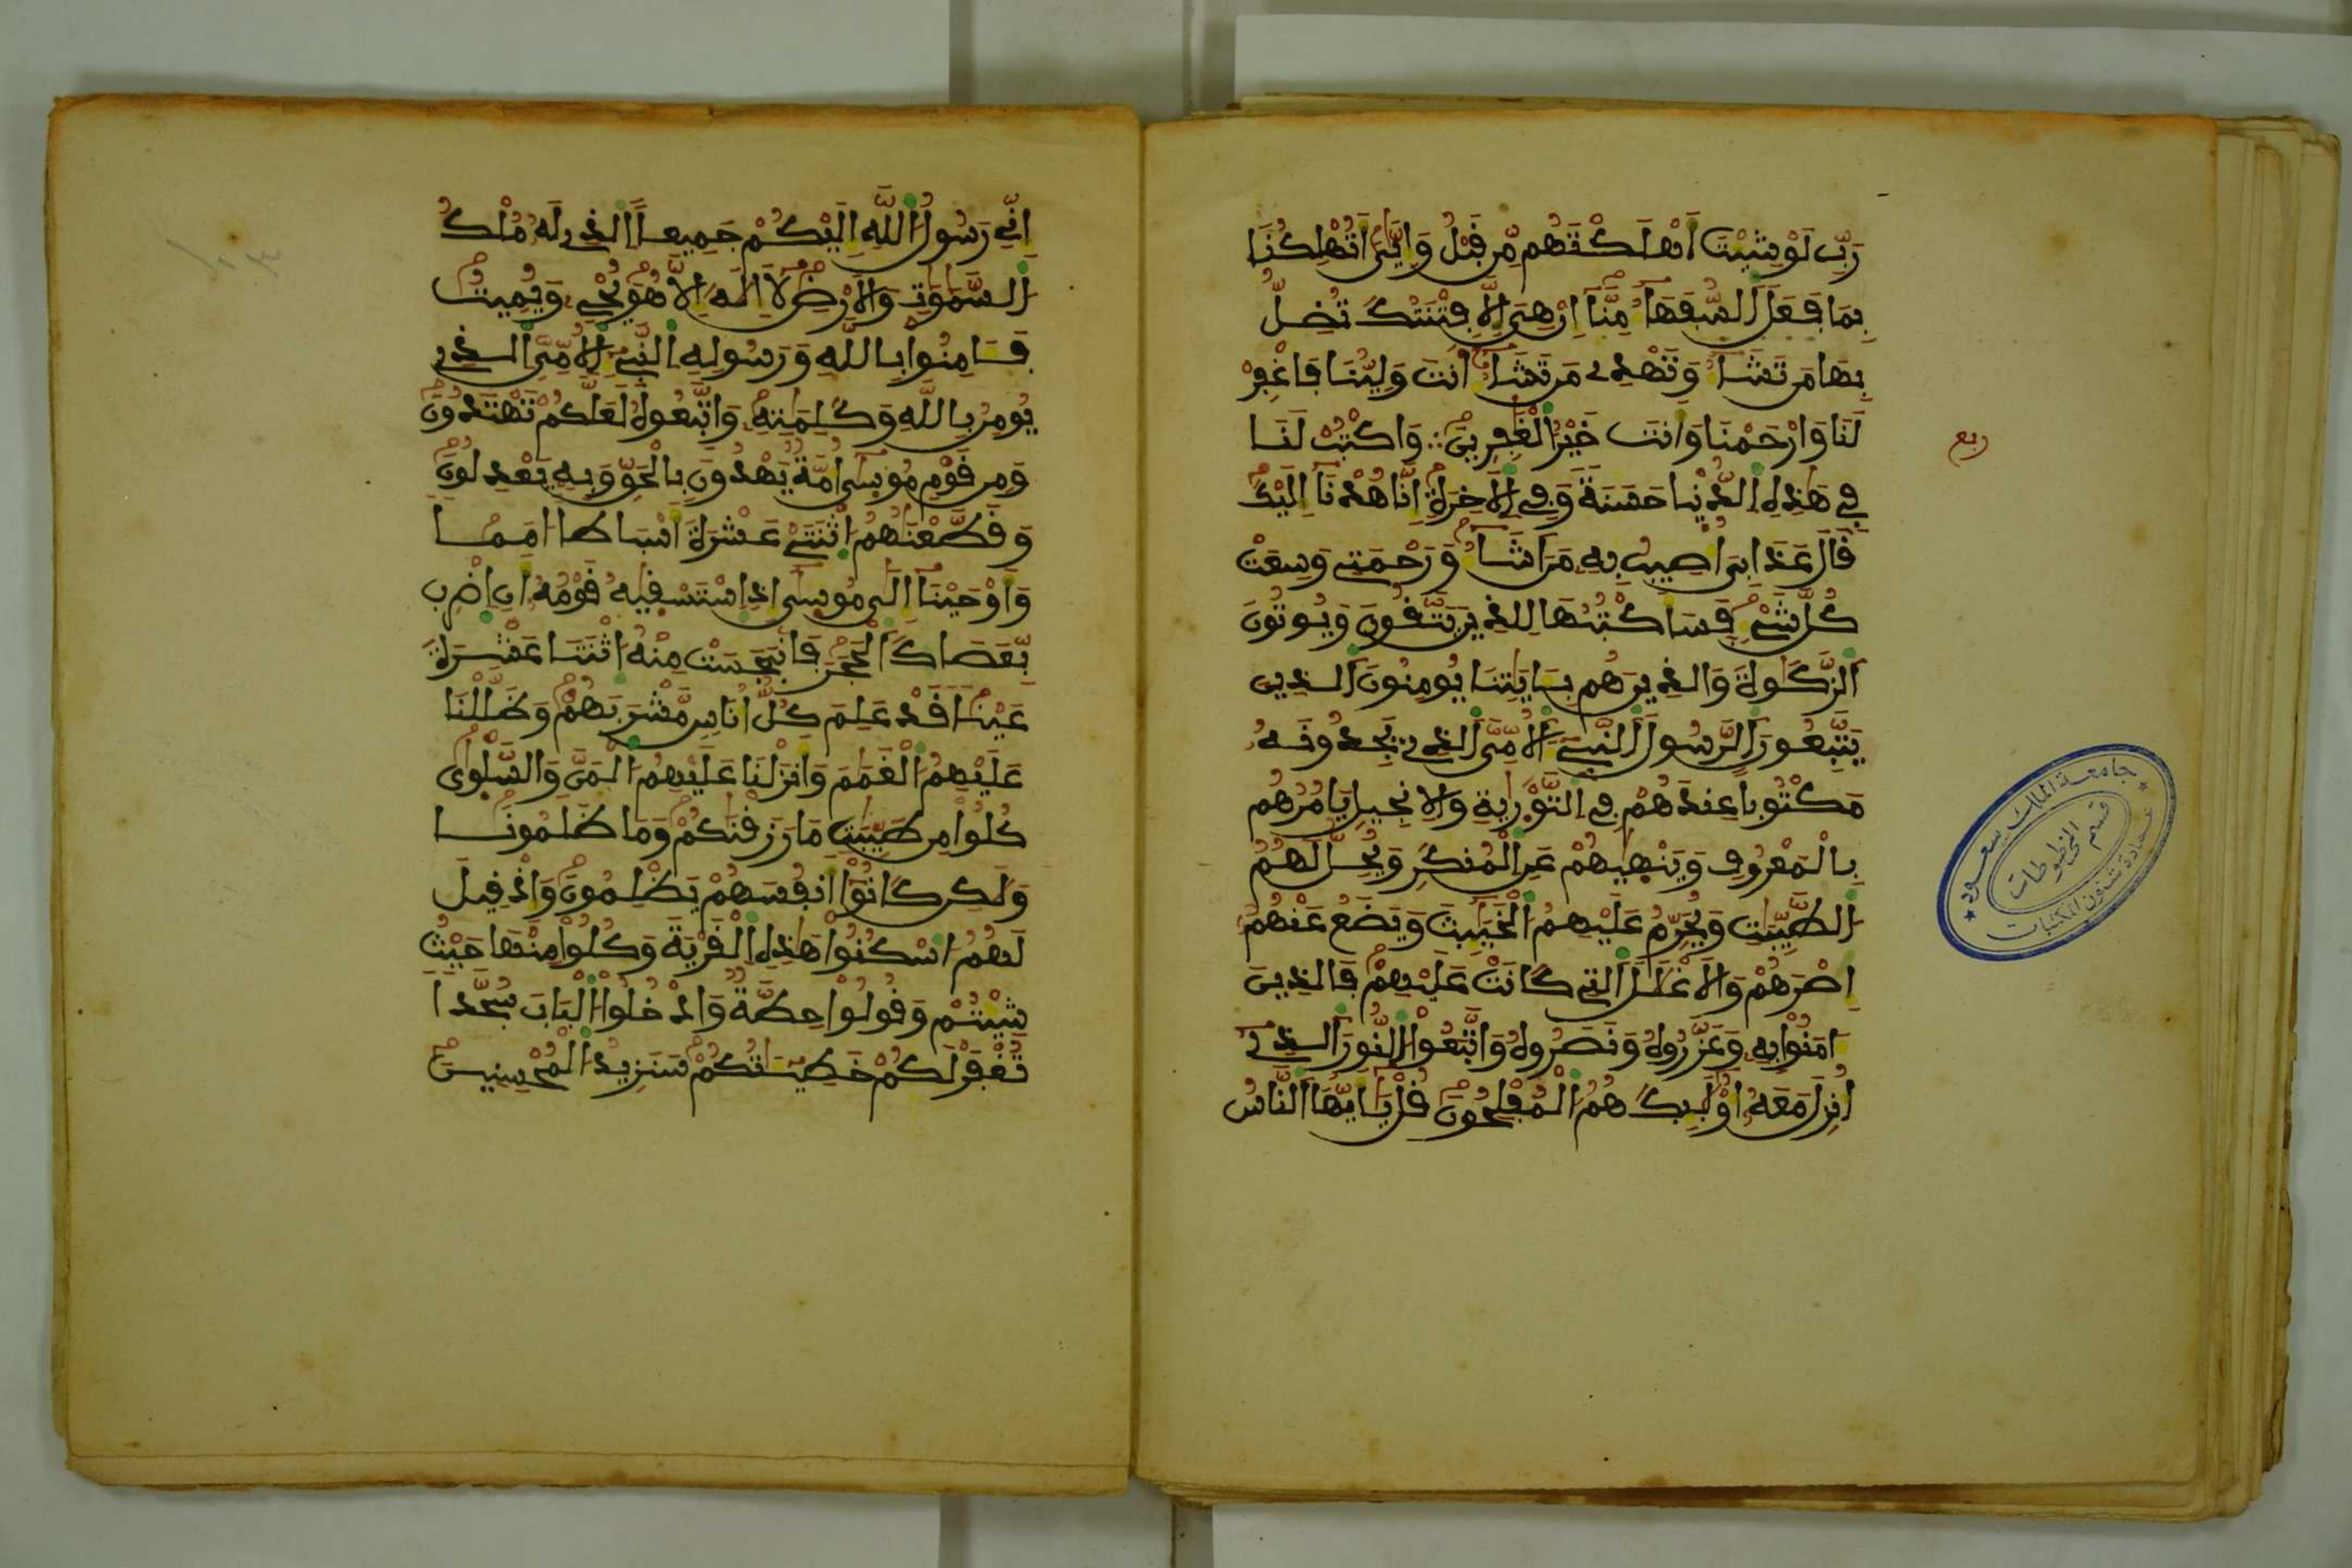 رَبِّ لَوْ شِئْتَ أَهْلَكْتَهُم مِّن قَبْلُ وَإِيَّٰىَ أَتُهْلِكُنَا
بِمَا فَعَلَ ٱلسُّفَهَآءُ مِنَّآ إِنْ هِىَ إِلَّا فِتْنَتُكَ تُضِلُّ
بِهَا مَن تَشَآءُ وَتَهْدِے مَن تَشَآءُ أَنتَ وَلِيُّنَا فَاغْفِرْ
لَنَا وَارْحَمْنَا وَأَنتَ خَيْرُ ٱلْغَٰفِرِينَ ؞ وَاكْتُبْ لَنَا
ربع
فِے هَٰذِهِ ٱلدُّنْيَا حَسَنَةً وَفِے ٱلْأَخِرَةِ إِنَّا هُدْنَآ إِلَيْكَ
قَالَ عَذَابِىَ أُصِيبُ بِهِۦ مَنْ أَشَآءُ وَرَحْمَتِے وَسِعَتْ
كُلَّ شَےْءٍ فَسَأَكْتُبُهَا لِلَّذِينَ يَتَّقُونَ وَيُوتُونَ
ٱلزَّكَوٰةَ وَالَّذِينَ هُم بِـَٔايَٰتِنَا يُومِنُونَ ٱلَّذِينَ
يَتَّبِعُونَ ٱلرَّسُولَ ٱلنَّبِےٓءَ ٱلْأُمِّىَّ ٱلَّذِے يَجِدُونَهُۥ
مَكْتُوباً عِندَهُمْ فِے ٱلتَّوْرَىٰةِ وَالْإِنجِيلِ يَامُرُهُم
بِالْمَعْرُوفِ وَيَنْهَىٰهُمْ عَنِ ٱلْمُنكَرِ وَيُحِلُّ لَهُمُ
ٱلطَّيِّبَٰتِ وَيُحَرِّمُ عَلَيْهِمُ ٱلْخَبَٰٓئِثَ وَيَضَعُ عَنْهُمُۥٓ
إِصْرَهُمْ وَالْأَغْلَٰلَ ٱلَّتِے كَانَتْ عَلَيْهِمْ فَالَّذِينَ
ءَامَنُوا۟ بِهِۦ وَعَزَّرُوهُ وَنَصَرُوهُ وَاتَّبَعُوا۟ ٱلنُّورَ ٱلَّذِےٓ
أُنزِلَ مَعَهُۥٓ أُو۟لَٰٓئِكَ هُمُ ٱلْمُفْلِحُونَ قُلْ يَٰٓأَيُّهَا ٱلنَّاسُ
جامعة الملك سعود
قسم المخطوطات
عمادة شئون المكتبات
إِنِّے رَسُولُ ٱللَّهِ إِلَيْكُمْ جَمِيعاً ٱلَّذِے لَهُۥ مُلْكُ
ٱلسَّمَٰوَٰتِ وَالْأَرْضِ لَآ إِلَٰهَ إِلَّا هُوَ يُحْىِۦ وَيُمِيتُ
فَـَٔامِنُوا۟ بِاللَّهِ وَرَسُولِهِ ٱلنَّبِےٓءِ ٱلْأُمِّىِّ ٱلَّذِے
يُومِنُ بِاللَّهِ وَكَلِمَٰتِهِۦ وَاتَّبِعُوهُ لَعَلَّكُمْ تَهْتَدُونَ
وَمِن قَوْمِ مُوسَىٰٓ أُمَّةٌ يَهْدُونَ بِالْحَقِّ وَبِهِۦ يَعْدِلُونَ
وَقَطَّعْنَٰهُمُ ٱثْنَتَےْ عَشْرَةَ أَسْبَاطاً أُمَماً
وَأَوْحَيْنَآ إِلَىٰ مُوسَىٰٓ إِذِ ٱسْتَسْقَىٰهُ قَوْمُهُۥٓ أَنِ ٱضْرِب
بِّعَصَاكَ ٱلْحَجَرَ فَانۢبَجَسَتْ مِنْهُ ٱثْنَتَا عَشْرَةَ
عَيْناً قَدْ عَلِمَ كُلُّ أُنَاسٍ مَّشْرَبَهُمْ وَظَلَّلْنَا
عَلَيْهِمُ ٱلْغَمَٰمَ وَأَنزَلْنَا عَلَيْهِمُ ٱلْمَنَّ وَالسَّلْوَىٰ
كُلُوا۟ مِن طَيِّبَٰتِ مَا رَزَقْنَٰكُمْ وَمَا ظَلَمُونَا
وَلَٰكِن كَانُوٓا۟ أَنفُسَهُمْ يَظْلِمُونَ وَإِذْ قِيلَ
لَهُمُ ٱسْكُنُوا۟ هَٰذِهِ ٱلْقَرْيَةَ وَكُلُوا۟ مِنْهَا حَيْثُ
شِئْتُمْ وَقُولُوا۟ حِطَّةٌ وَادْخُلُوا۟ ٱلْبَابَ سُجَّداً
تُغْفَرْ لَكُمْ خَطِيٓـَٰٔتُكُمْ سَنَزِيدُ ٱلْمُحْسِنِينَ